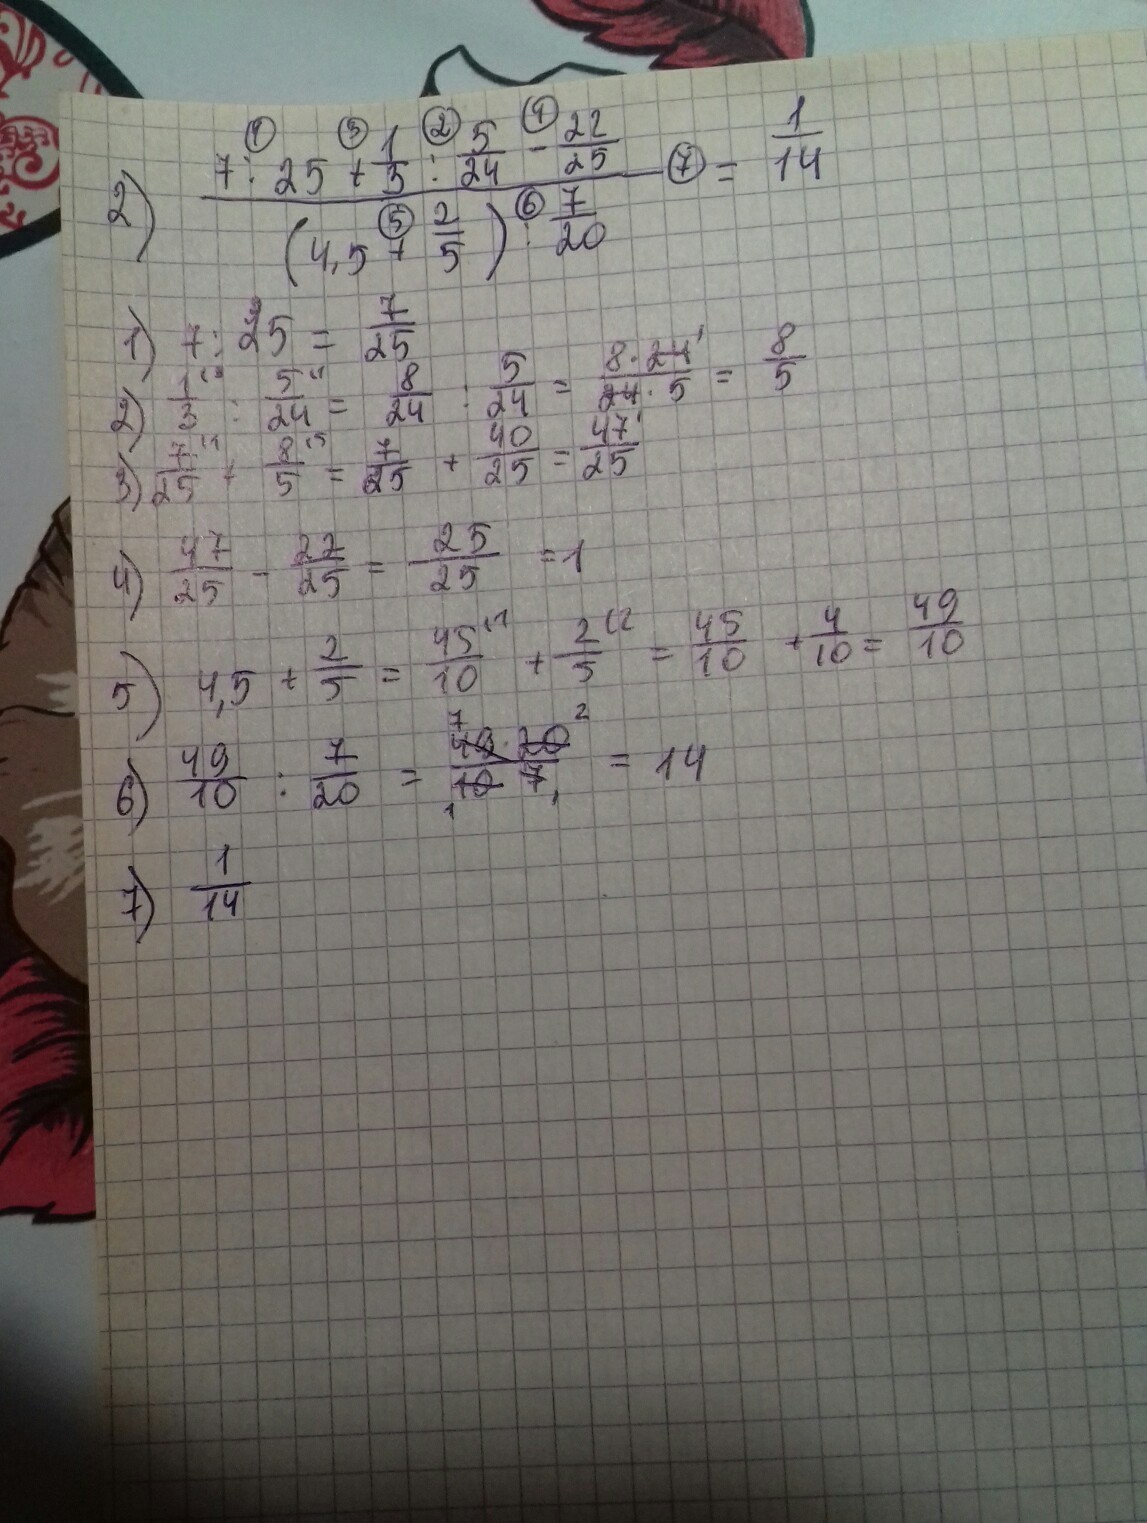 2) (7 : 25 + 1/3 : 5/24 - 22/25) / ((4,5 + 2/5) : 7/20) = 1/14
1) 7 : 25 = 7/25
2) 1/3 : 5/24 = 8/24 : 5/24 = 8·24/24·5 = 8/5
3) 7/25 + 8/5 = 7/25 + 40/25 = 47/25
4) 47/25 - 22/25 = 25/25 = 1
5) 4,5 + 2/5 = 45/10 + 2/5 = 45/10 + 4/10 = 49/10
6) 49/10 : 7/20 = 49·20/10 7 = 14
7) 1/14